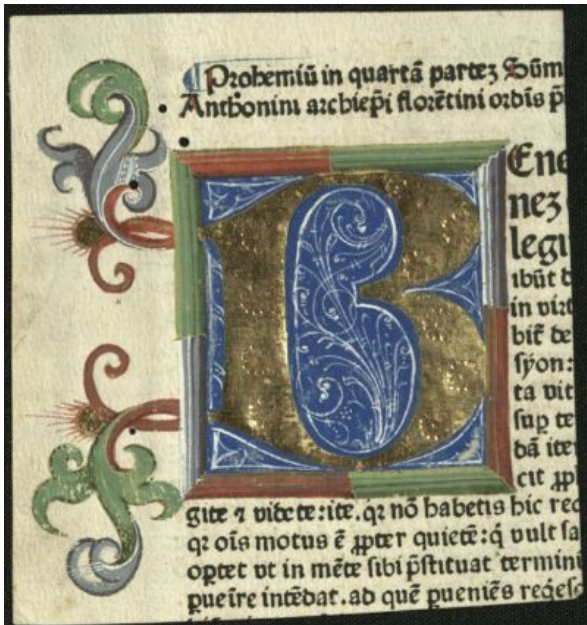 Prohemiū in quartā partez Sūm
Anthonini archiepi̅ florētini ordīs p̄
BEne
nez
legi
ibūt d
in virt
bit̄ de
syon:
ta vit
sup te
dā ite
cit ꝓp
gite ⁊ videte: ite. qr nō habetis hic req
qr oīs motus ē ꝓpter quietē: q̇ vult sa
optet vt in mēte sibi p̄stituat termin
puēire intēdat. ad quē pueniēs reqesc